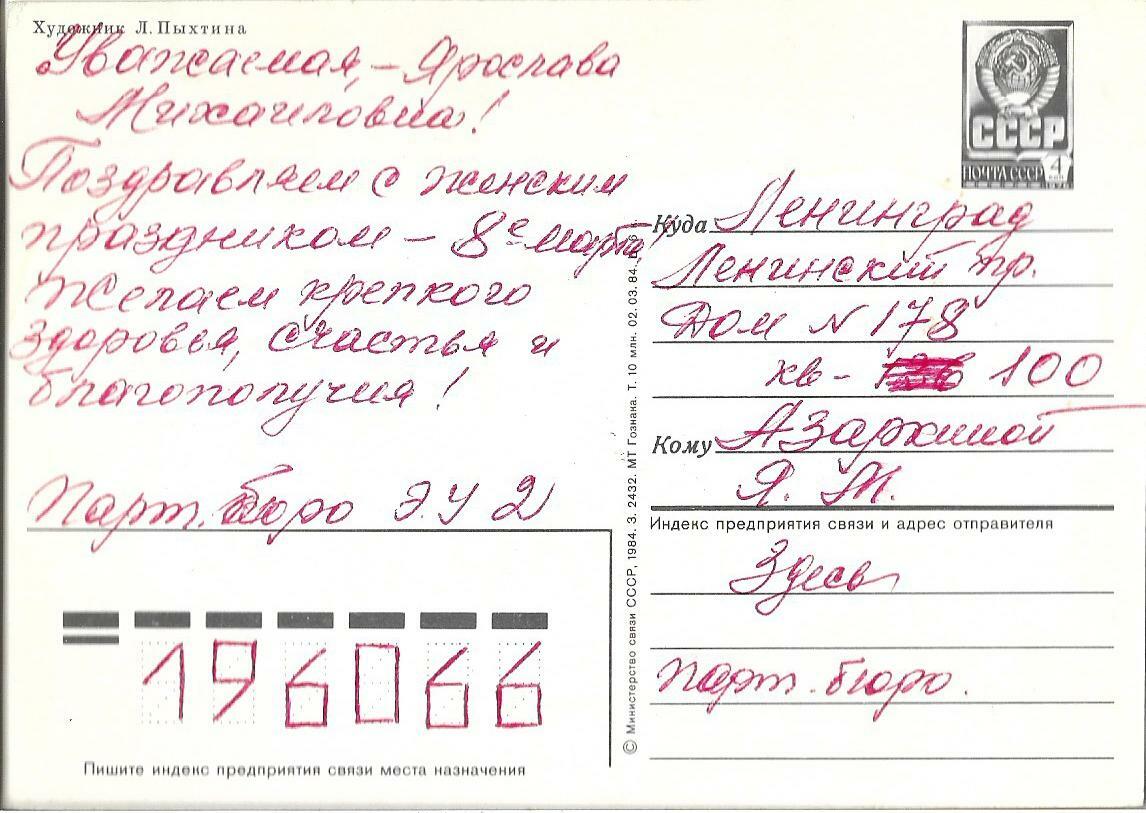 Художник Л. Пыхтина
Уважаемая, – Ярослава
Михайловна!
Поздравляем с женским
праздником – 8е марта!
Желаем крепкого
здоровья, счастья и
благополучия!
Парт. бюро Э.У 2
СССР
ПОЧТА СССР 4
Куда Ленинград
Ленинский пр.
Дом N 178
кв – 100
Кому Азаркиной
Я. М.
Индекс предприятия связи и адрес отправителя
Здесь
Парт. бюро.
196066
Пишите индекс предприятия связи места назначения
© Министерство связи СССР, 1984. З. 2432. МТ Гознака. Т. 10 млн. 02. 03. 84.